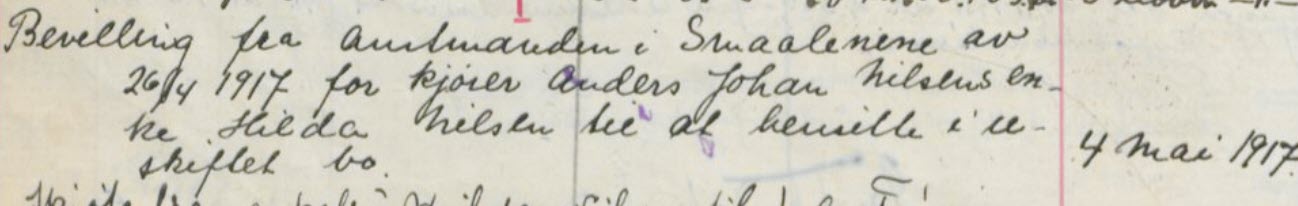 Bevilling fra Amtmanden i Smaalenene av
26/4 1917 for kjører Anders Johan Nilsens en-
ke Hilda Nilsen til at hensitte i u-
skiftet bo.
4 Mai 1917.